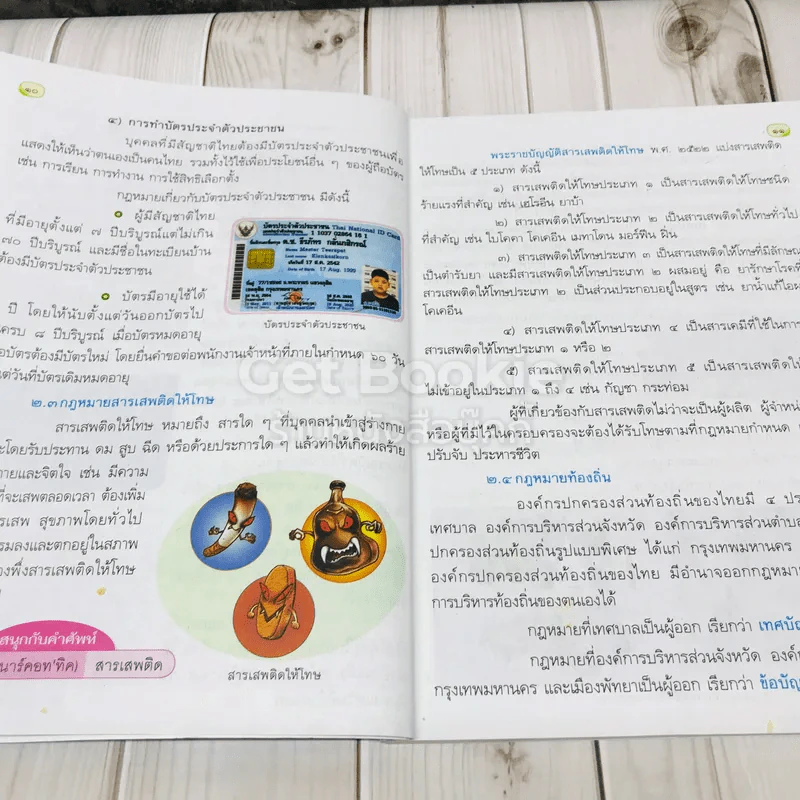 ๑๐
๔) การทำบัตรประจำตัวประชาชน
บุคคลที่มีสัญชาติไทยต้องมีบัตรประจำตัวประชาชนเพื่อ
แสดงให้เห็นว่าตนเองเป็นคนไทย รวมทั้งไว้ใช้เพื่อประโยชน์อื่น ๆ ของผู้ถือบัตร
เช่น การเรียน การทำงาน การใช้สิทธิเลือกตั้ง
กฎหมายเกี่ยวกับบัตรประจำตัวประชาชน มีดังนี้
ผู้มีสัญชาติไทย
ที่มีอายุตั้งแต่ ๗ ปีบริบูรณ์แต่ไม่เกิน
๗๐ ปีบริบูรณ์ และมีชื่อในทะเบียนบ้าน
ต้องมีบัตรประจำตัวประชาชน
บัตรมีอายุใช้ได้
ปี โดยให้นับตั้งแต่วันออกบัตรไป
ครบ ๘ ปีบริบูรณ์ เมื่อบัตรหมดอายุ
บัตรต้องมีบัตรใหม่ โดยยื่นคำขอต่อพนักงานเจ้าหน้าที่ภายในกำหนด ๖๐ วัน
แต่วันที่บัตรเดิมหมดอายุ
บัตรประจำตัวประชาชน Thai National ID Card
1 1037 02664 16 1
ด.ช. ธีรภัทร กลั่นกสิกรณ์
Name Master Teerapat
Last name Klenkasikorn
เกิดวันที่ 17 ส.ค. 2542
Date of Birth 17 Aug. 1999
บัตรประจำตัวประชาชน
๒.๓ กฎหมายสารเสพติดให้โทษ
สารเสพติดให้โทษ หมายถึง สารใด ๆ ที่บุคคลนำเข้าสู่ร่างกาย
โดยรับประทาน ดม สูบ ฉีด หรือด้วยประการใด ๆ แล้วทำให้เกิดผลร้าย
กายและจิตใจ เช่น มีความ
ที่จะเสพตลอดเวลา ต้องเพิ่ม
รเสพ สุขภาพโดยทั่วไป
รมลงและตกอยู่ในสภาพ
องพึ่งสารเสพติดให้โทษ
สารเสพติดให้โทษ
สนุกกับคำศัพท์
(นาร์คอท'ทิค) สารเสพติด
๑๑
พระราชบัญญัติสารเสพติดให้โทษ พ.ศ. ๒๕๒๒ แบ่งสารเสพติด
ให้โทษเป็น ๕ ประเภท ดังนี้
๑) สารเสพติดให้โทษประเภท ๑ เป็นสารเสพติดให้โทษชนิด
ร้ายแรงที่สำคัญ เช่น เฮโรอีน ยาบ้า
๒) สารเสพติดให้โทษประเภท ๒ เป็นสารเสพติดให้โทษทั่วไป
ที่สำคัญ เช่น ใบโคคา โคเคอีน เมทาโดน มอร์ฟีน ฝิ่น
๓) สารเสพติดให้โทษประเภท ๓ เป็นสารเสพติดให้โทษที่มีลักษณะ
เป็นตำรับยา และมีสารเสพติดให้โทษประเภท ๒ ผสมอยู่ คือ ยารักษาโรคที่
สารเสพติดให้โทษประเภท ๒ เป็นส่วนประกอบอยู่ในสูตร เช่น ยาน้ำแก้ไอผ
โคเคอีน
๔) สารเสพติดให้โทษประเภท ๔ เป็นสารเคมีที่ใช้ในการ
สารเสพติดให้โทษประเภท ๑ หรือ ๒
๕) สารเสพติดให้โทษประเภท ๕ เป็นสารเสพติดให้
ไม่เข้าอยู่ในประเภท ๑ ถึง ๔ เช่น กัญชา กระท่อม
ผู้ที่เกี่ยวข้องกับสารเสพติดไม่ว่าจะเป็นผู้ผลิต ผู้จำหน่
หรือผู้ที่มีไว้ในครอบครองจะต้องได้รับโทษตามที่กฎหมายกำหนด
ปรับจับ ประหารชีวิต
๒.๔ กฎหมายท้องถิ่น
องค์กรปกครองส่วนท้องถิ่นของไทยมี ๔ ปร
เทศบาล องค์การบริหารส่วนจังหวัด องค์การบริหารส่วนตำบล
ปกครองส่วนท้องถิ่นรูปแบบพิเศษ ได้แก่ กรุงเทพมหานคร
องค์กรปกครองส่วนท้องถิ่นของไทย มีอำนาจออกกฎหมาย
การบริหารท้องถิ่นของตนเองได้
กฎหมายที่เทศบาลเป็นผู้ออก เรียกว่า เทศบัญ
กฎหมายที่องค์การบริหารส่วนจังหวัด องค์
กรุงเทพมหานคร และเมืองพัทยาเป็นผู้ออก เรียกว่า ข้อบัญ